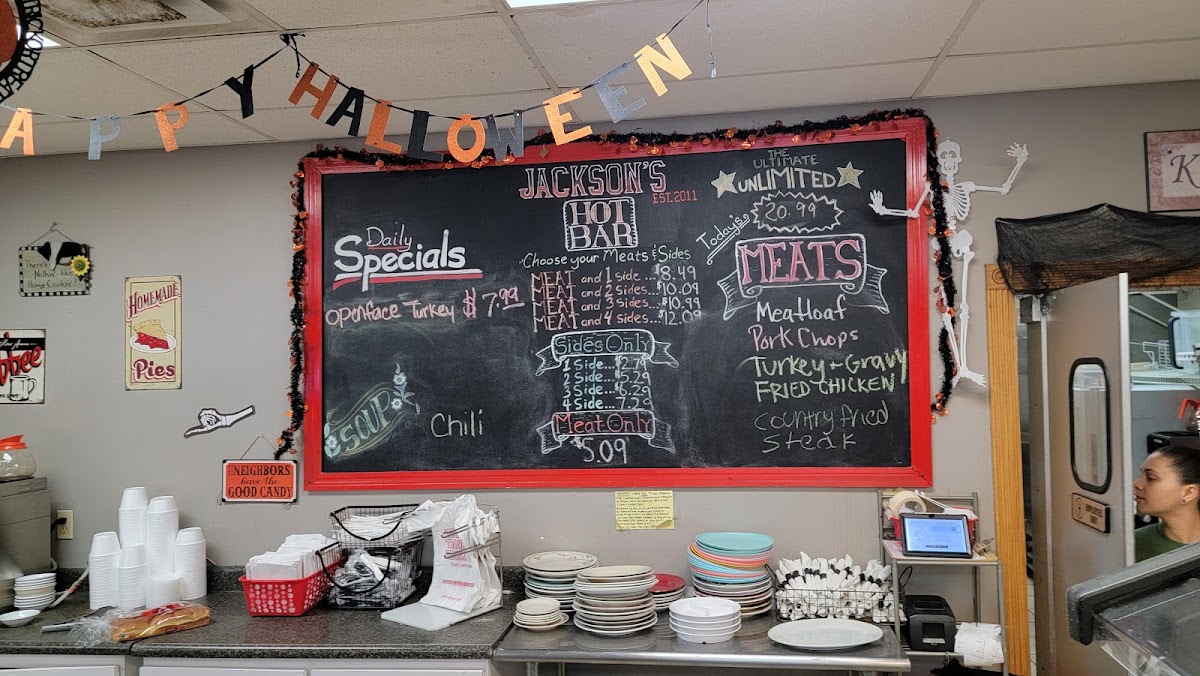 APPY HALLOWEEN
JACKSON'S
EST. 2011
HOT
BAR
Choose your Meats & Sides
MEAT and 1 Side ... $8.49
MEAT and 2 Sides... $10.09
MEAT and 3 Sides... $10.99
MEAT and 4 sides... $12.09
Sides Only
1 Side... $2.79
2 Side... 5.29
3 Side... 6.29
4 Side... 7.59
Meat Only
$5.09
Daily
Specials
Openface Turkey $7.99
SOUP
Chili
THE
ULTIMATE
UNLIMITED
Today's
20.99
MEATS
Meatloaf
Pork Chops
Turkey + Gravy
FRIED CHICKEN
Country fried
steak
Nothin' like
Home Cookin'!
HOMEMADE
Pies
NEIGHBORS
have the
GOOD CANDY
K